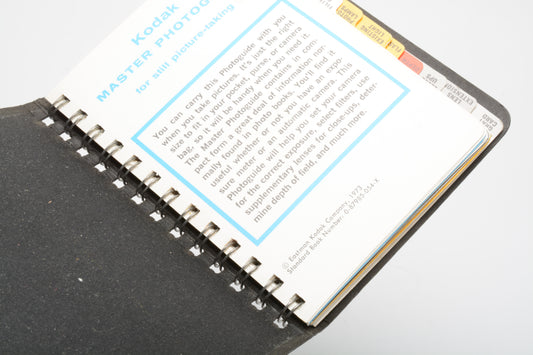 Kodak
MASTER PHOTOG
for still picture-taking
You can carry this Photoguide with you
when you take pictures. It's just the right
size to fit in your pocket, purse, or camera
bag, so it will be handy when you need it.
The Master Photoguide contains in com-
pact form a great deal of information nor-
mally found in photo books. You'll find it
useful whether or not you have an expo-
sure meter or an automatic camera. This
Photoguide will help you set your camera
for the correct exposure, select filters, use
supplementary lenses for close-ups, deter-
mine depth of field, and much more.
© Eastman Kodak Company, 1973
Standard Book Number: 0-87985-054-X
PHOTO
LAMPS
EXISTING
LIGHT
FLA
UPS
LENS
EXTENSION
CARD